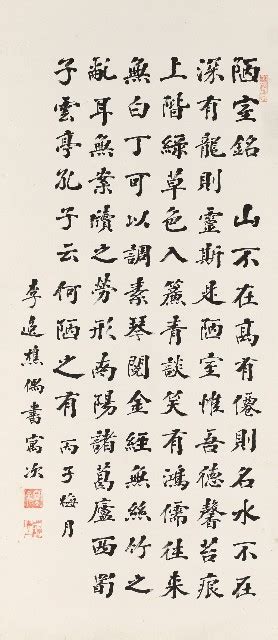 陋室銘 山不在高有僊則名水不在
深有龍則靈斯是陋室惟吾德馨苔痕
上階綠草色入簾青談笑有鴻儒往來
無白丁可以調素琴閱金經無絲竹之
亂耳無案牘之勞形南陽諸葛廬西蜀
子雲亭孔子云何陋之有 丙子梅月
李逸樵偶書寓次